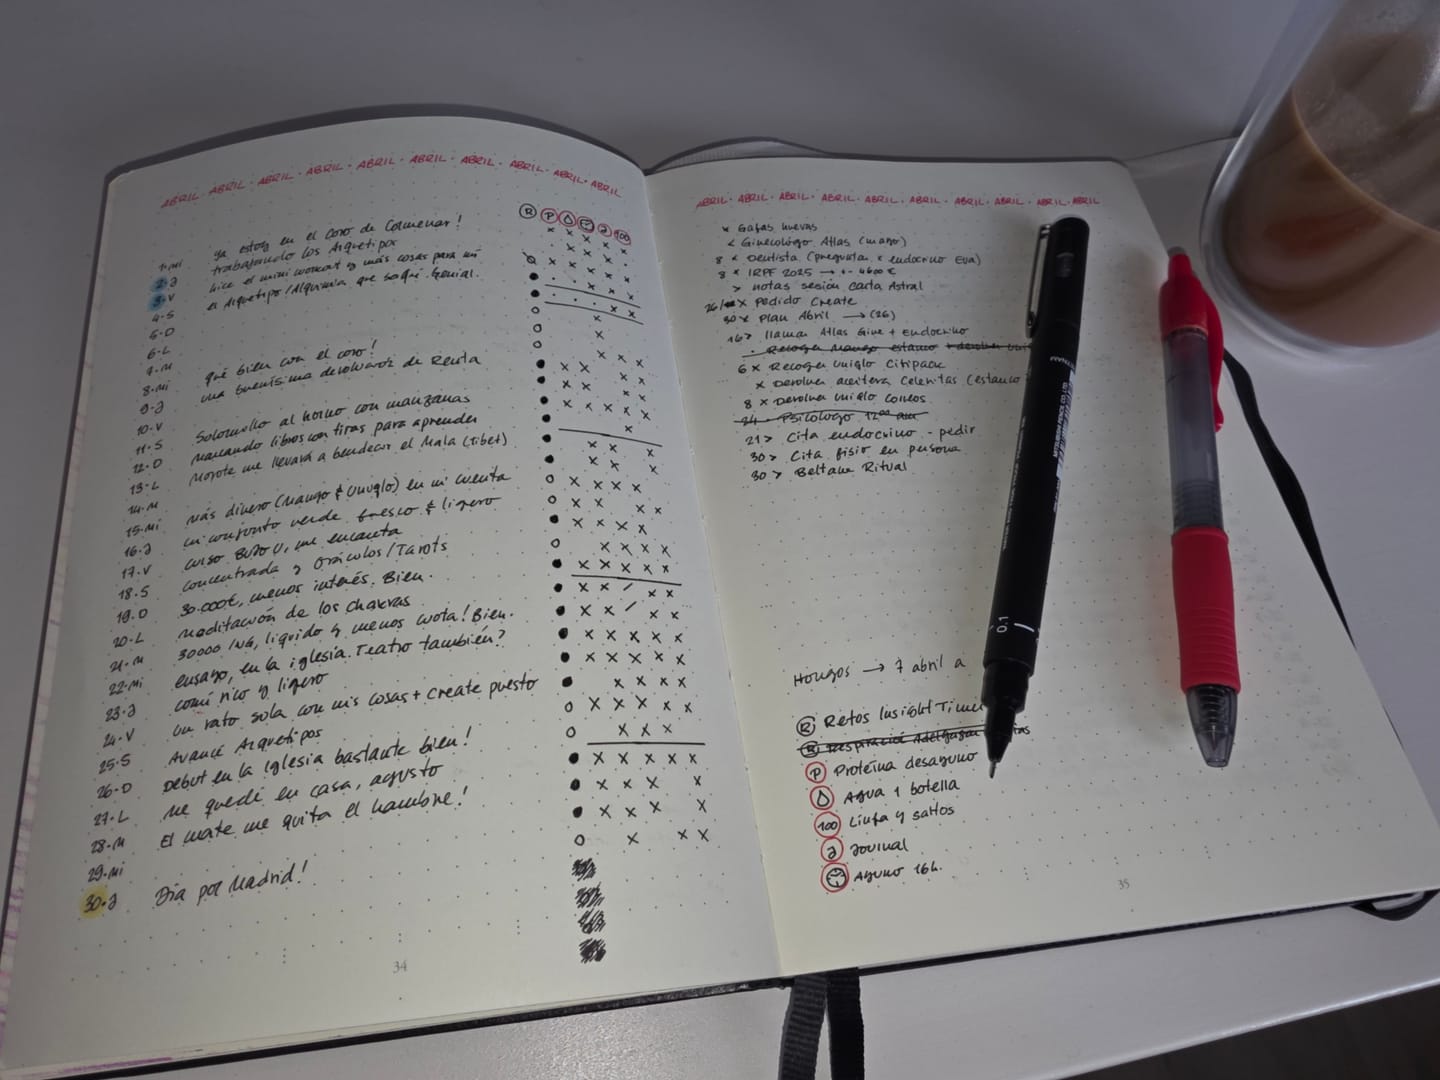 ABRIL · ABRIL · ABRIL · ABRIL · ABRIL · ABRIL · ABRIL · ABRIL · ABRIL · ABRIL
R P 100
1·Mi Ya estoy en el coro de Colmenar!
2·J trabajando los Arquetipos
3·V hice el mini workout y más cosas para mi
4·S el Arquetipo/Alquimia que saqué. Genial.
5·D
6·L
7·M qué bien con el coro!
8·Mi una buenísima de Renta
9·J
10·V Solomillo al horno con manzanas
11·S Marcando libros con tiras para aprender
12·D me llevará a bendecir el Mala (Tibet)
13·L
14·M más dinero (Mango & Uniqlo) en mi cuenta
15·Mi mi conjunto verde fresco & ligero
16·J curso me encanta
17·V concentrada y oráculos/Tarots
18·S 30.000€, menos interés. Bien.
19·D Meditación de los chakras
20·L 30000 ING, líquido y menos cuota! Bien.
21·M ensayo, en la iglesia. Teatro también?
22·Mi comí rico y ligero
23·J un rato sola con mis cosas + create puesto
24·V Avancé Arquetipos
25·S Debut en la iglesia bastante bien!
26·D me quedé en casa, agusto
27·L El mate me quita el hambre!
28·M
29·Mi
30·J Día por Madrid!
34
ABRIL · ABRIL · ABRIL · ABRIL · ABRIL · ABRIL · ABRIL · ABRIL · ABRIL · ABRIL
x Gafas nuevas
< Ginecólogo Atlas (mayo)
8 < Dentista (preguntar x endocrino Eva)
8 x IRPF 2025 → +- 4600€
> notas sesión carta Astral
26/ x pedido Create
30 x Plan Abril → (26)
16> llamar Atlas Gine + Endocrino
· Recoger Mango estanco + devolver
6 x Recoger Uniqlo Citipack
x Devolver aceitera Celeritas (estanco
8 x Devolver Uniqlo Correos
24 · Psicólogo 12:00 am
21> Cita endocrino - pedir
30> Cita fisio en persona
30> Beltane Ritual
Hongos → 7 abril a
R Retos Insight Timer
R Respiración Adelgazar
P Proteína desayuno
Agua 1 botella
100 Linfa y saltos
J Journal
Ayuno 16h.
35
0.1